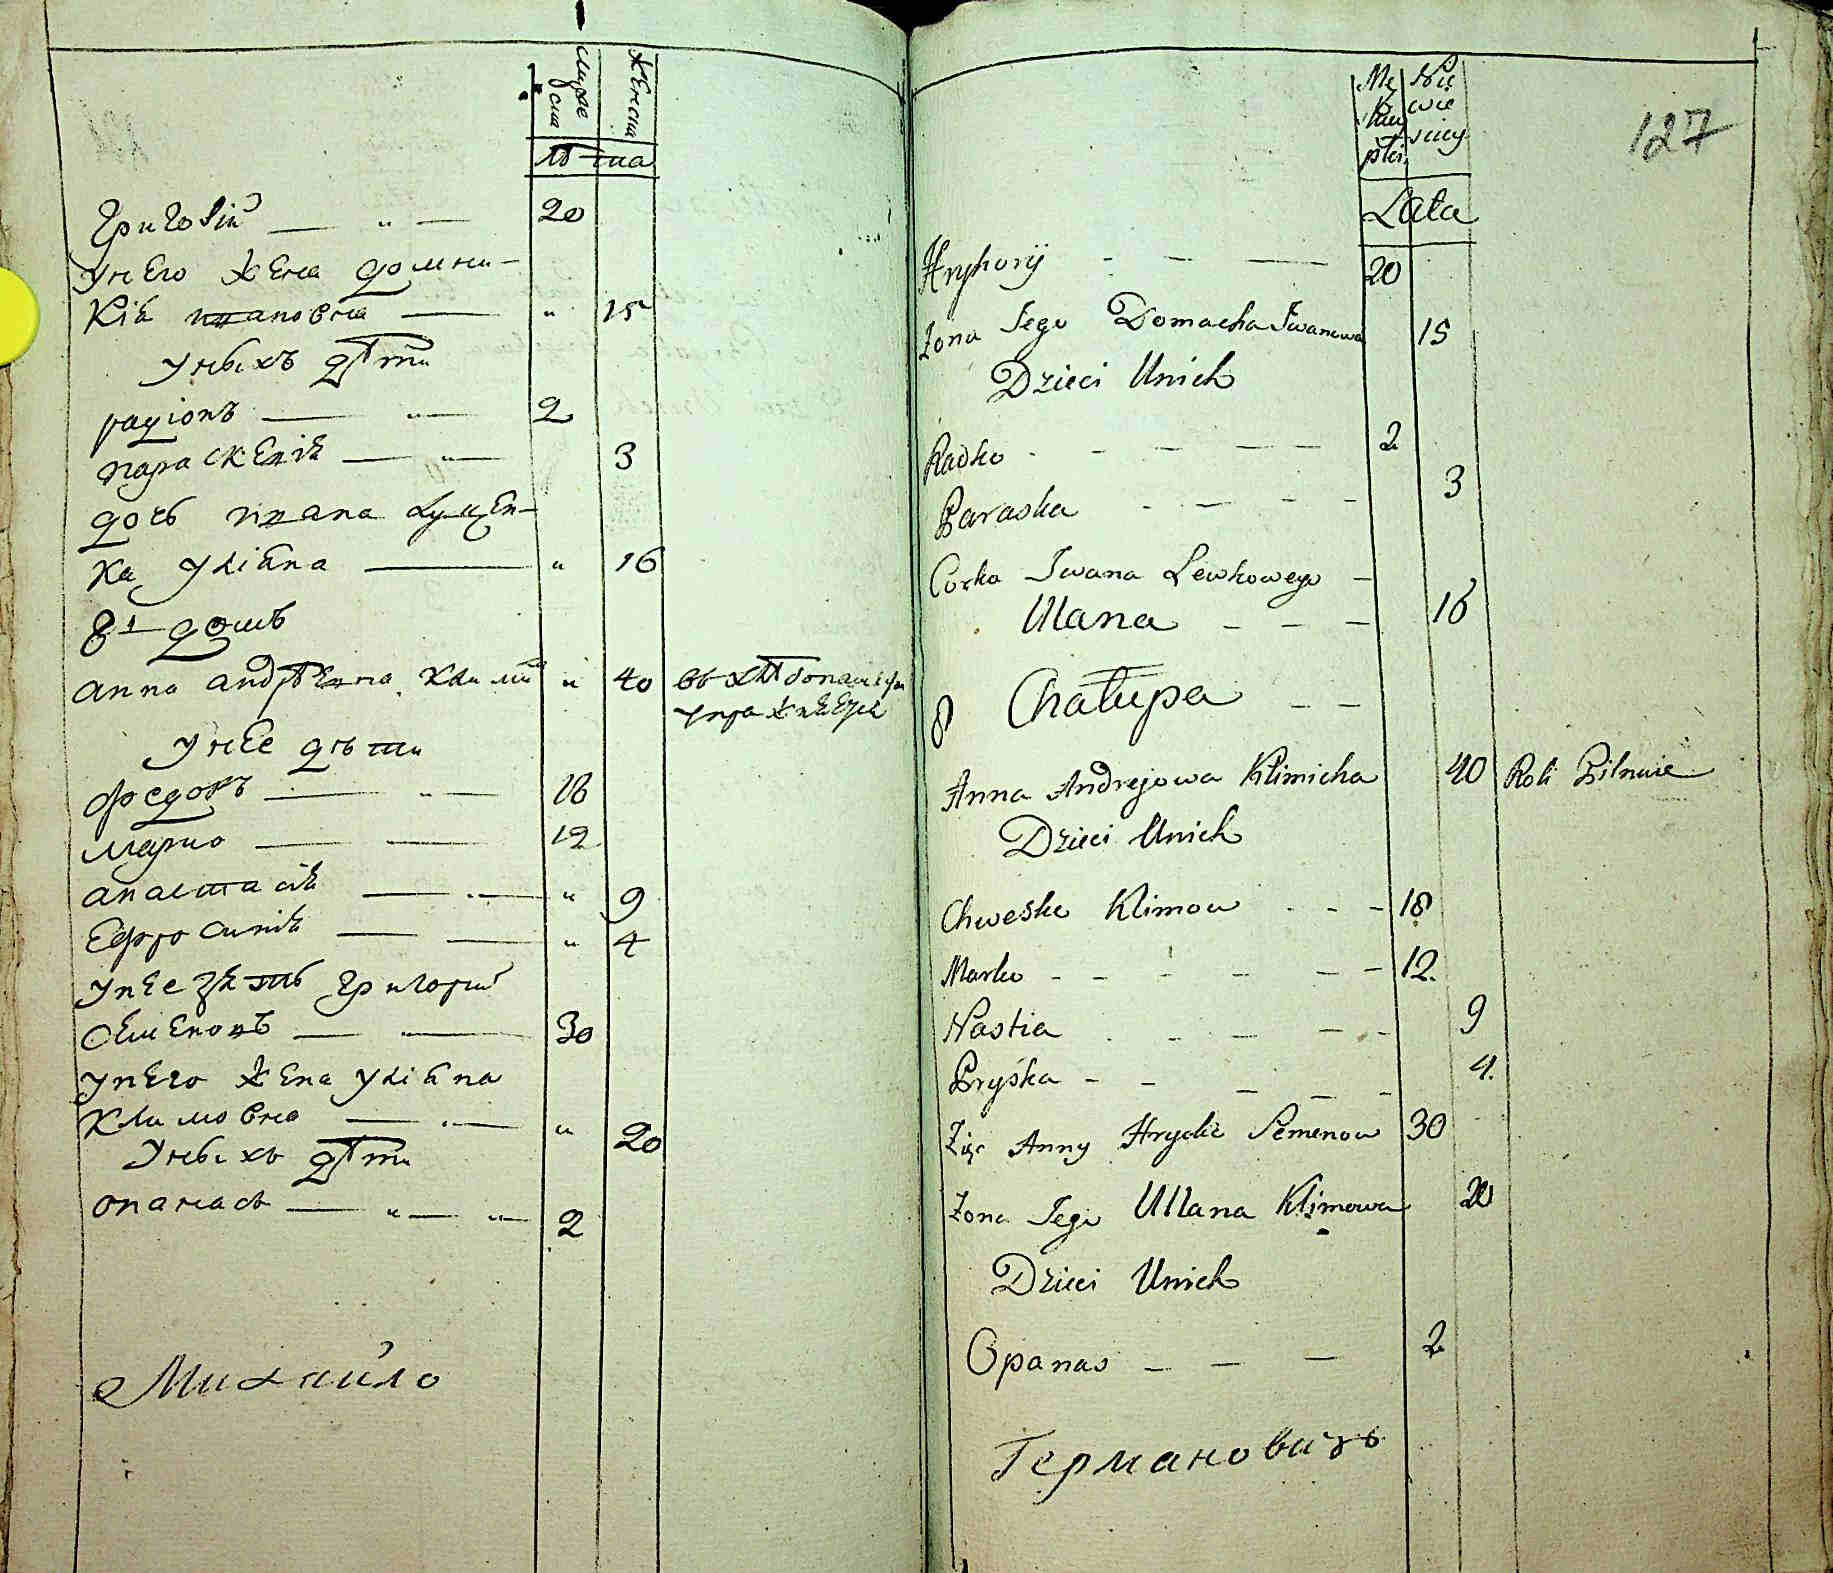 мужеска
женска
лѣта
Григорій — " — 20
У него жена домни-
кія ивановна — " 15
У нихъ дѣти
радіонъ — " — 2
параскевія — " — 3
дочь ивана Луцен-
ка уліяна — " 16
8й домъ
анна андрѣевна клими " 40
въ хлѣбопашест
упражняется
У нее дѣти
федоръ — " — 18
марко — — 12
анастасія — " — " 9
Ефросинія — — " 4
У нее зять григорий
семеновъ — " — 30
У него жена уліяна
климовна — " — " 20
У нихъ дѣти
опанасъ — " — " — 2
Михайло
127
Męzkiey płci
Niewiesciey
Lata
Hryhorÿ - - — 20
Zona Jego Domacha Iwanowa 15
Dzieci Unich
Radko - - - — — 2
Paraska - - - - - 3
Corka Iwana Lewkowego -
Ulana - - - 16
8 Chałupa - -
Anna Andrejowa Klimicha 40 Roli Pilnuie
Dzieci Unich
Chwesko Klimow - - - 18
Marko - - - - - - 12.
Nastia - - - - - 9
Pryska - - - - - 4.
Zięc Anny Hrycko Semenow 30
Zona Jego Ullana Klimowa 20
Dzieci Unich
Opanas - - - 2
Германовичъ